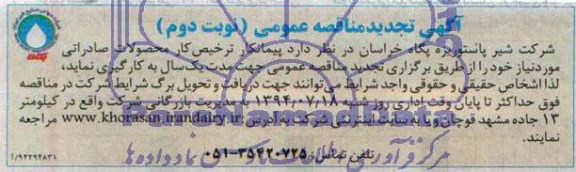 آگهی تجدیدمناقصه عمومی (نوبت دوم)
شرکت شیر پاستوریزه پگاه خراسان در نظر دارد پیمانکار ترخیص‌کار محصولات صادراتی
موردنیاز خود را از طریق برگزاری تجدید مناقصه عمومی جهت مدت یک‌سال به کارگیری نماید،
لذا اشخاص حقیقی و حقوقی واجد شرایط می‌توانند جهت دریافت و تحویل برگ شرایط شرکت در مناقصه
فوق حداکثر تا پایان وقت اداری روز شنبه ۱۳۹۴/۰۷/۱۸ به مدیریت بازرگانی شرکت واقع در کیلومتر
۱۳ جاده مشهد قوچان و یا به سایت اینترنتی شرکت به آدرس: www.khorasan.irandairy.ir مراجعه
نمایند.
تلفن تماس: ۳۵۴۲۰۷۲۵-۰۵۱
۹۴۲۹۴۸۳۱/۲
پگاه